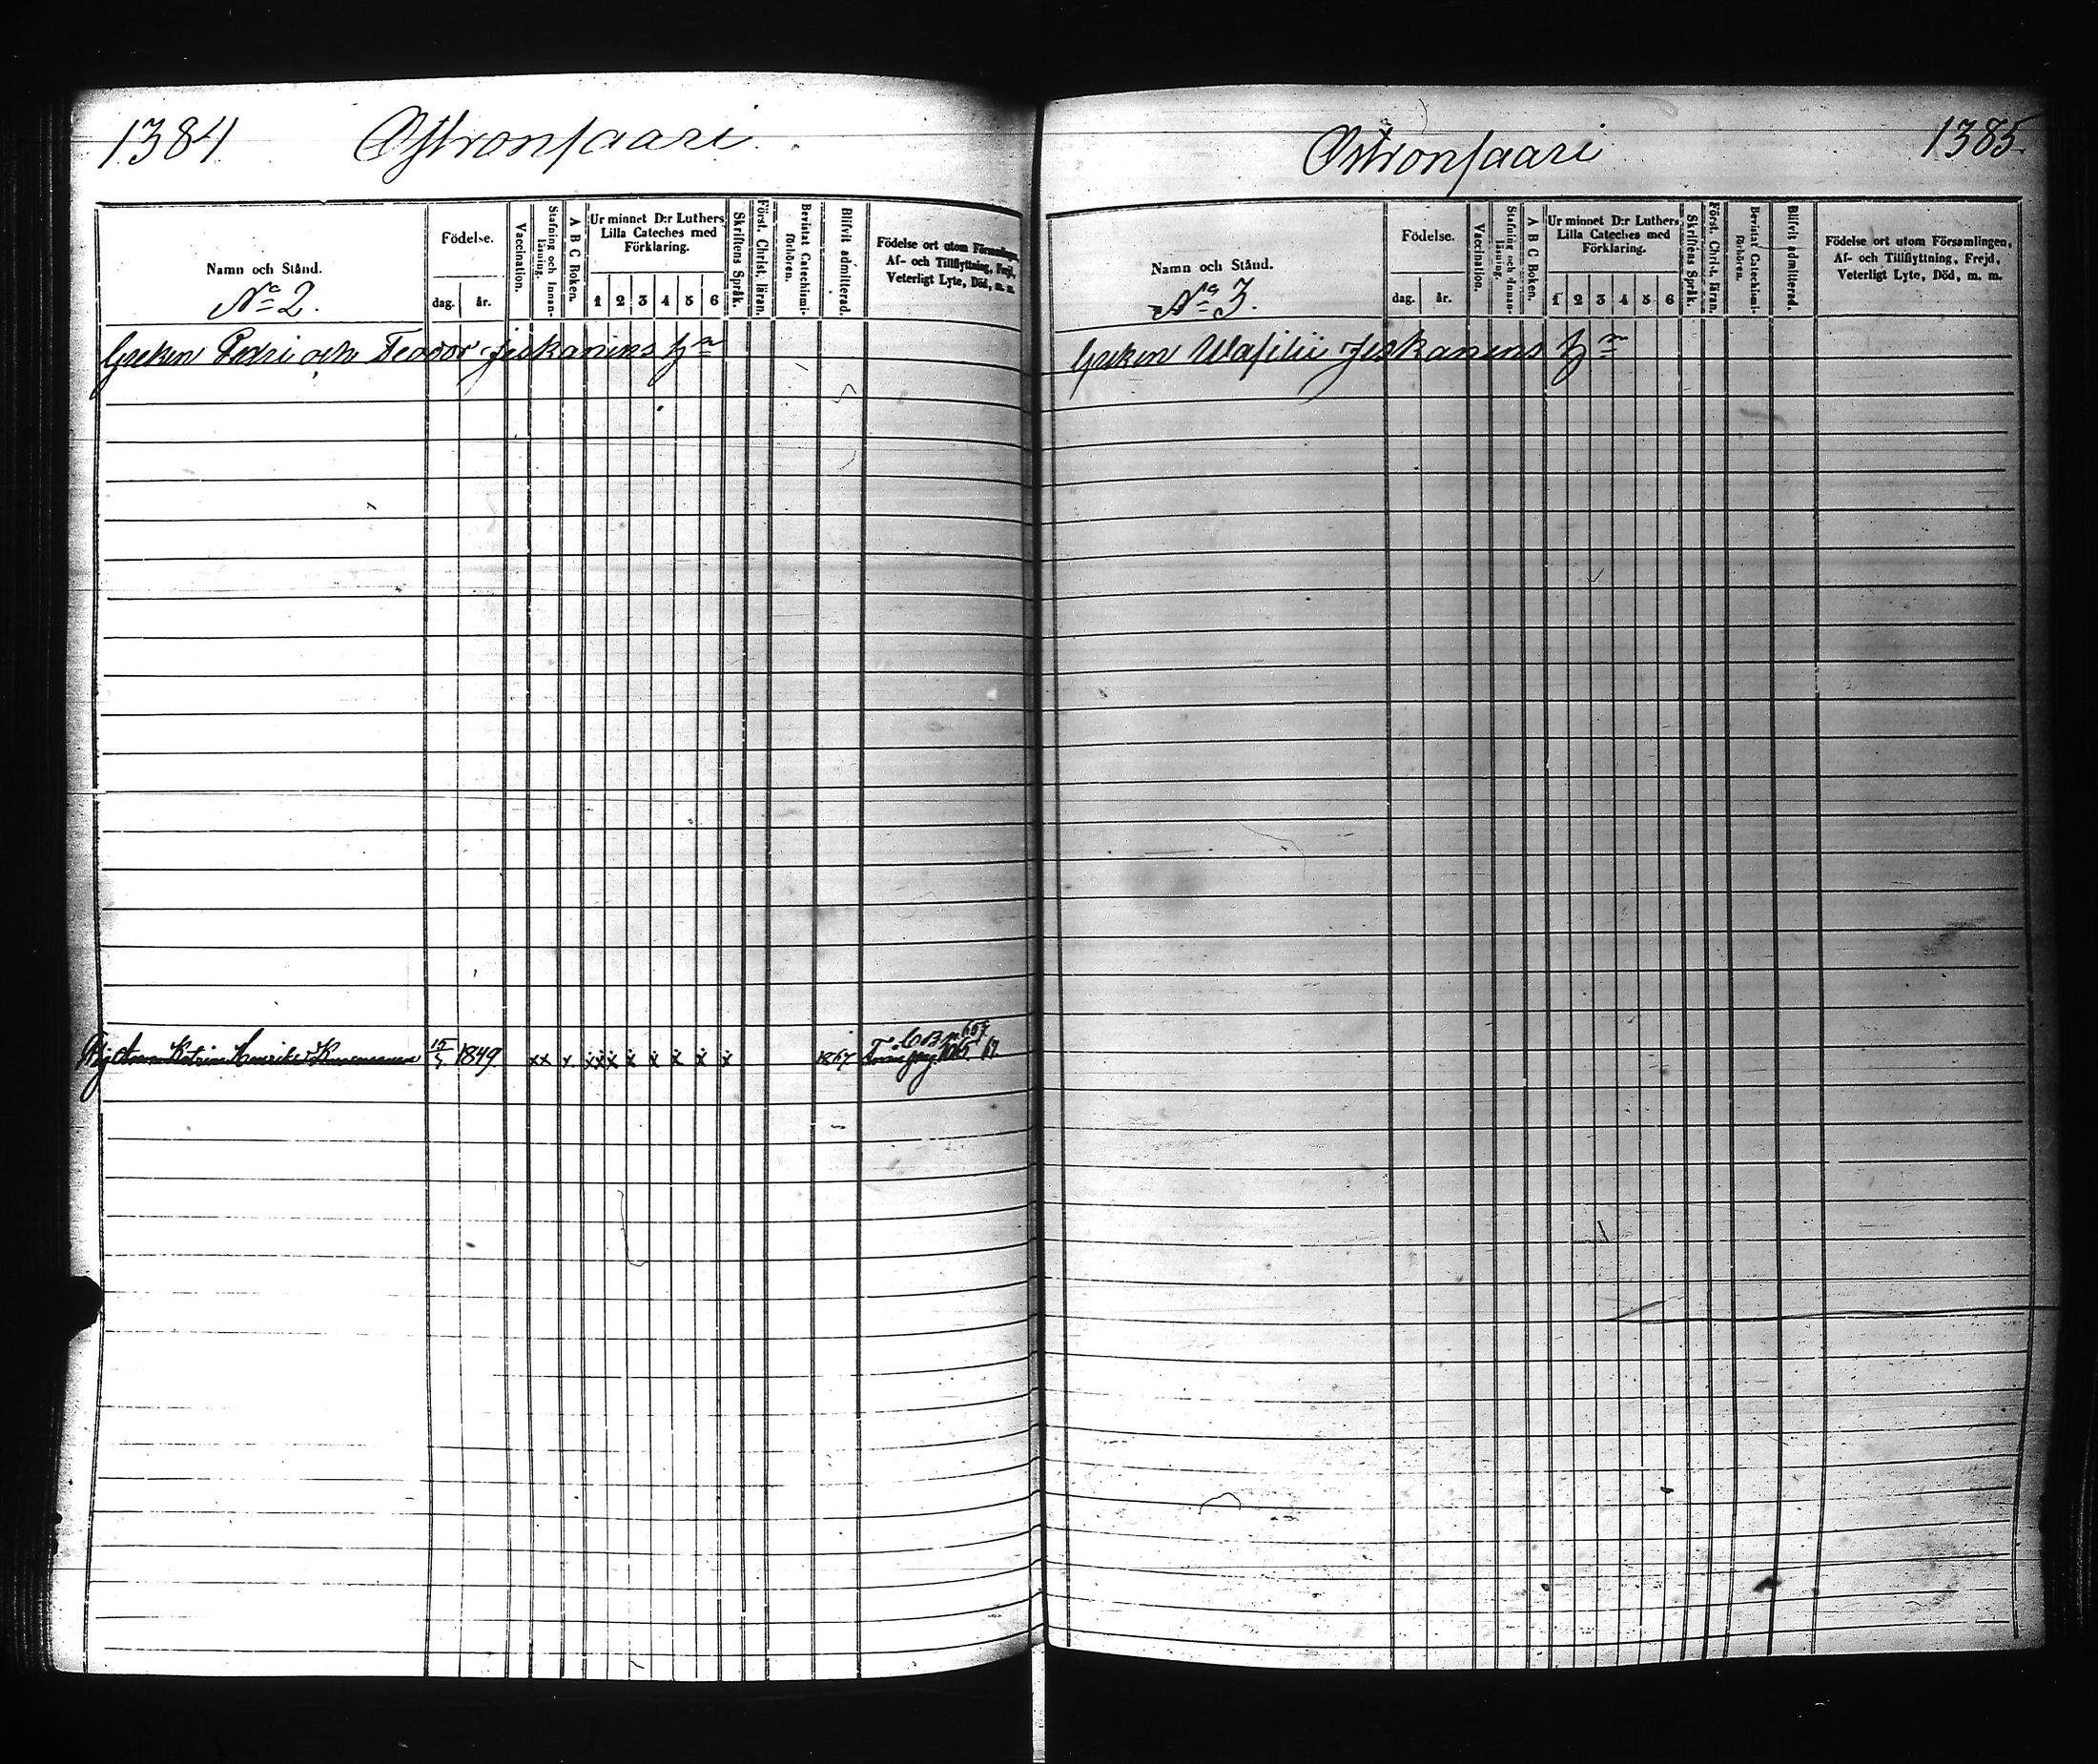 1384. Ostronsaari.
Namn och Stånd.
No 2.
Födelse.
dag. år.
Vaccination.
Stafning och Innan-läsning.
A B C Boken.
Ur minnet D:r Luthers Lilla Cateches med Förklaring.
1 2 3 4 5 6
Skriftens Språk.
Först. Christ. läran.
Bevistat Catechismi-förhören.
Blifvit admitterad.
Födelse ort utom Församlingen,
Af- och Tillflyttning, Frejd,
Veterligt Lyte, Död, m. m.
Greken Pedri och Feodor Jeskanens
Anna Katrina Henriksd. 15/4 1849 xx x. x x x x x x x x 1867
Ostronsaari 1385.
Namn och Stånd.
No 3.
Födelse.
dag. år.
Vaccination.
Stafning och Innan-läsning.
A B C Boken.
Ur minnet D:r Luthers Lilla Cateches med Förklaring.
1 2 3 4 5 6
Skriftens Språk.
Först. Christ. läran.
Bevistat Catechismi-förhören.
Blifvit admitterad.
Födelse ort utom Församlingen,
Af- och Tillflyttning, Frejd,
Veterligt Lyte, Död, m. m.
Greken Wasilii Jeskanens